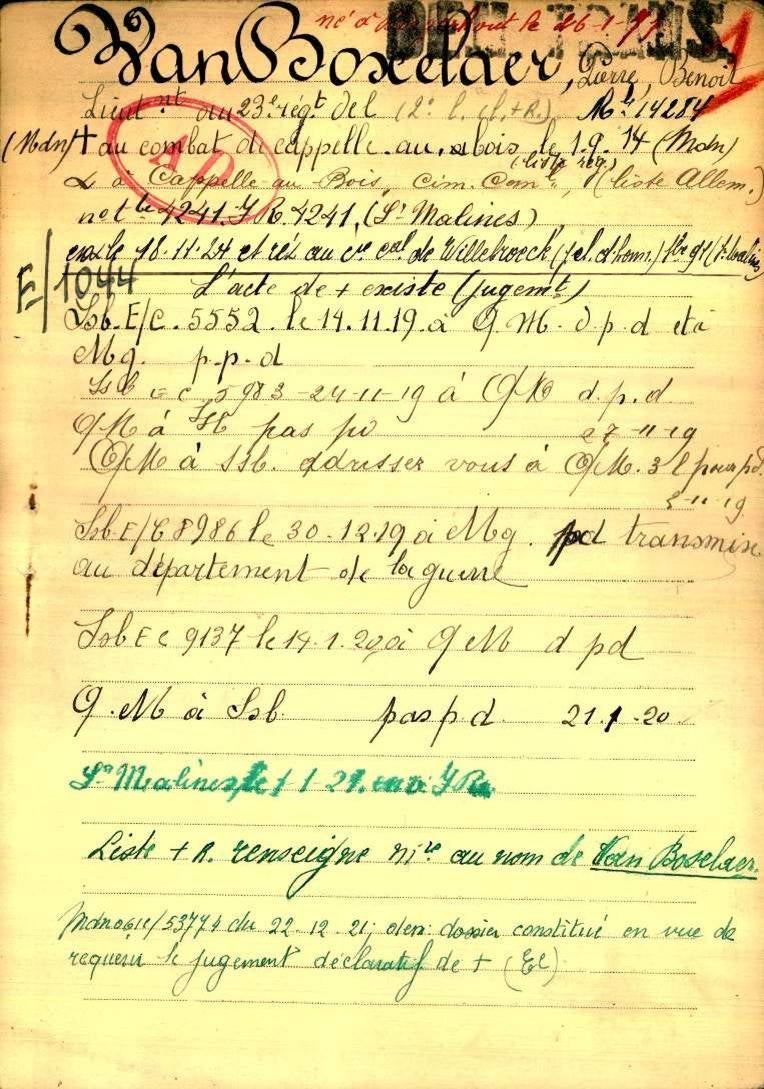 né à le 26-1-
Van Boxelaer, Pierre, Benoit
1
Lieut nt au 23e régt de l (2e l. cl. + R.) Mle 14284
A D
(Mdn) + au combat de Cappelle-au-bois le 1.9.14 (Mdn)
(liste rég.)
à Cappelle au Bois, Cim. Coml, (liste Allem.)
not 4241. J R. 4241, (Sr Malines)
exh le 18.11.24 et réi au cre col. de Willebroeck (pel. d'honn.) tbe 91 (Sr Malines)
E/1044
L'acte de + existe (Jugemt)
Ssb. E/C. 5552. le 14.11.19. à Q M. d.p.d et à
Mg. p.p.d
Ssb E C 5983 - 24-11-19 à QM d.p.d
QM à Ssb pas pd 27-11-19
QM à Ssb. adresser vous à QM. 3 l pour pd.
-11-19
Ssb. E/C 8986 le 30.12.19 à Mg. pd transmise
au département de la guerre
Ssb E C 9137 le 14.1.20 à QM d pd
Q.M à Ssb. pas p.d. 21.1.20
Sr Malines, le
Liste + R. renseigne m. au nom de Van Boselaer.
Mdn 061c/53774 du 22.12.21; dem: dossier constitué en vue de
requérir le jugement déclaratif de + (EC)